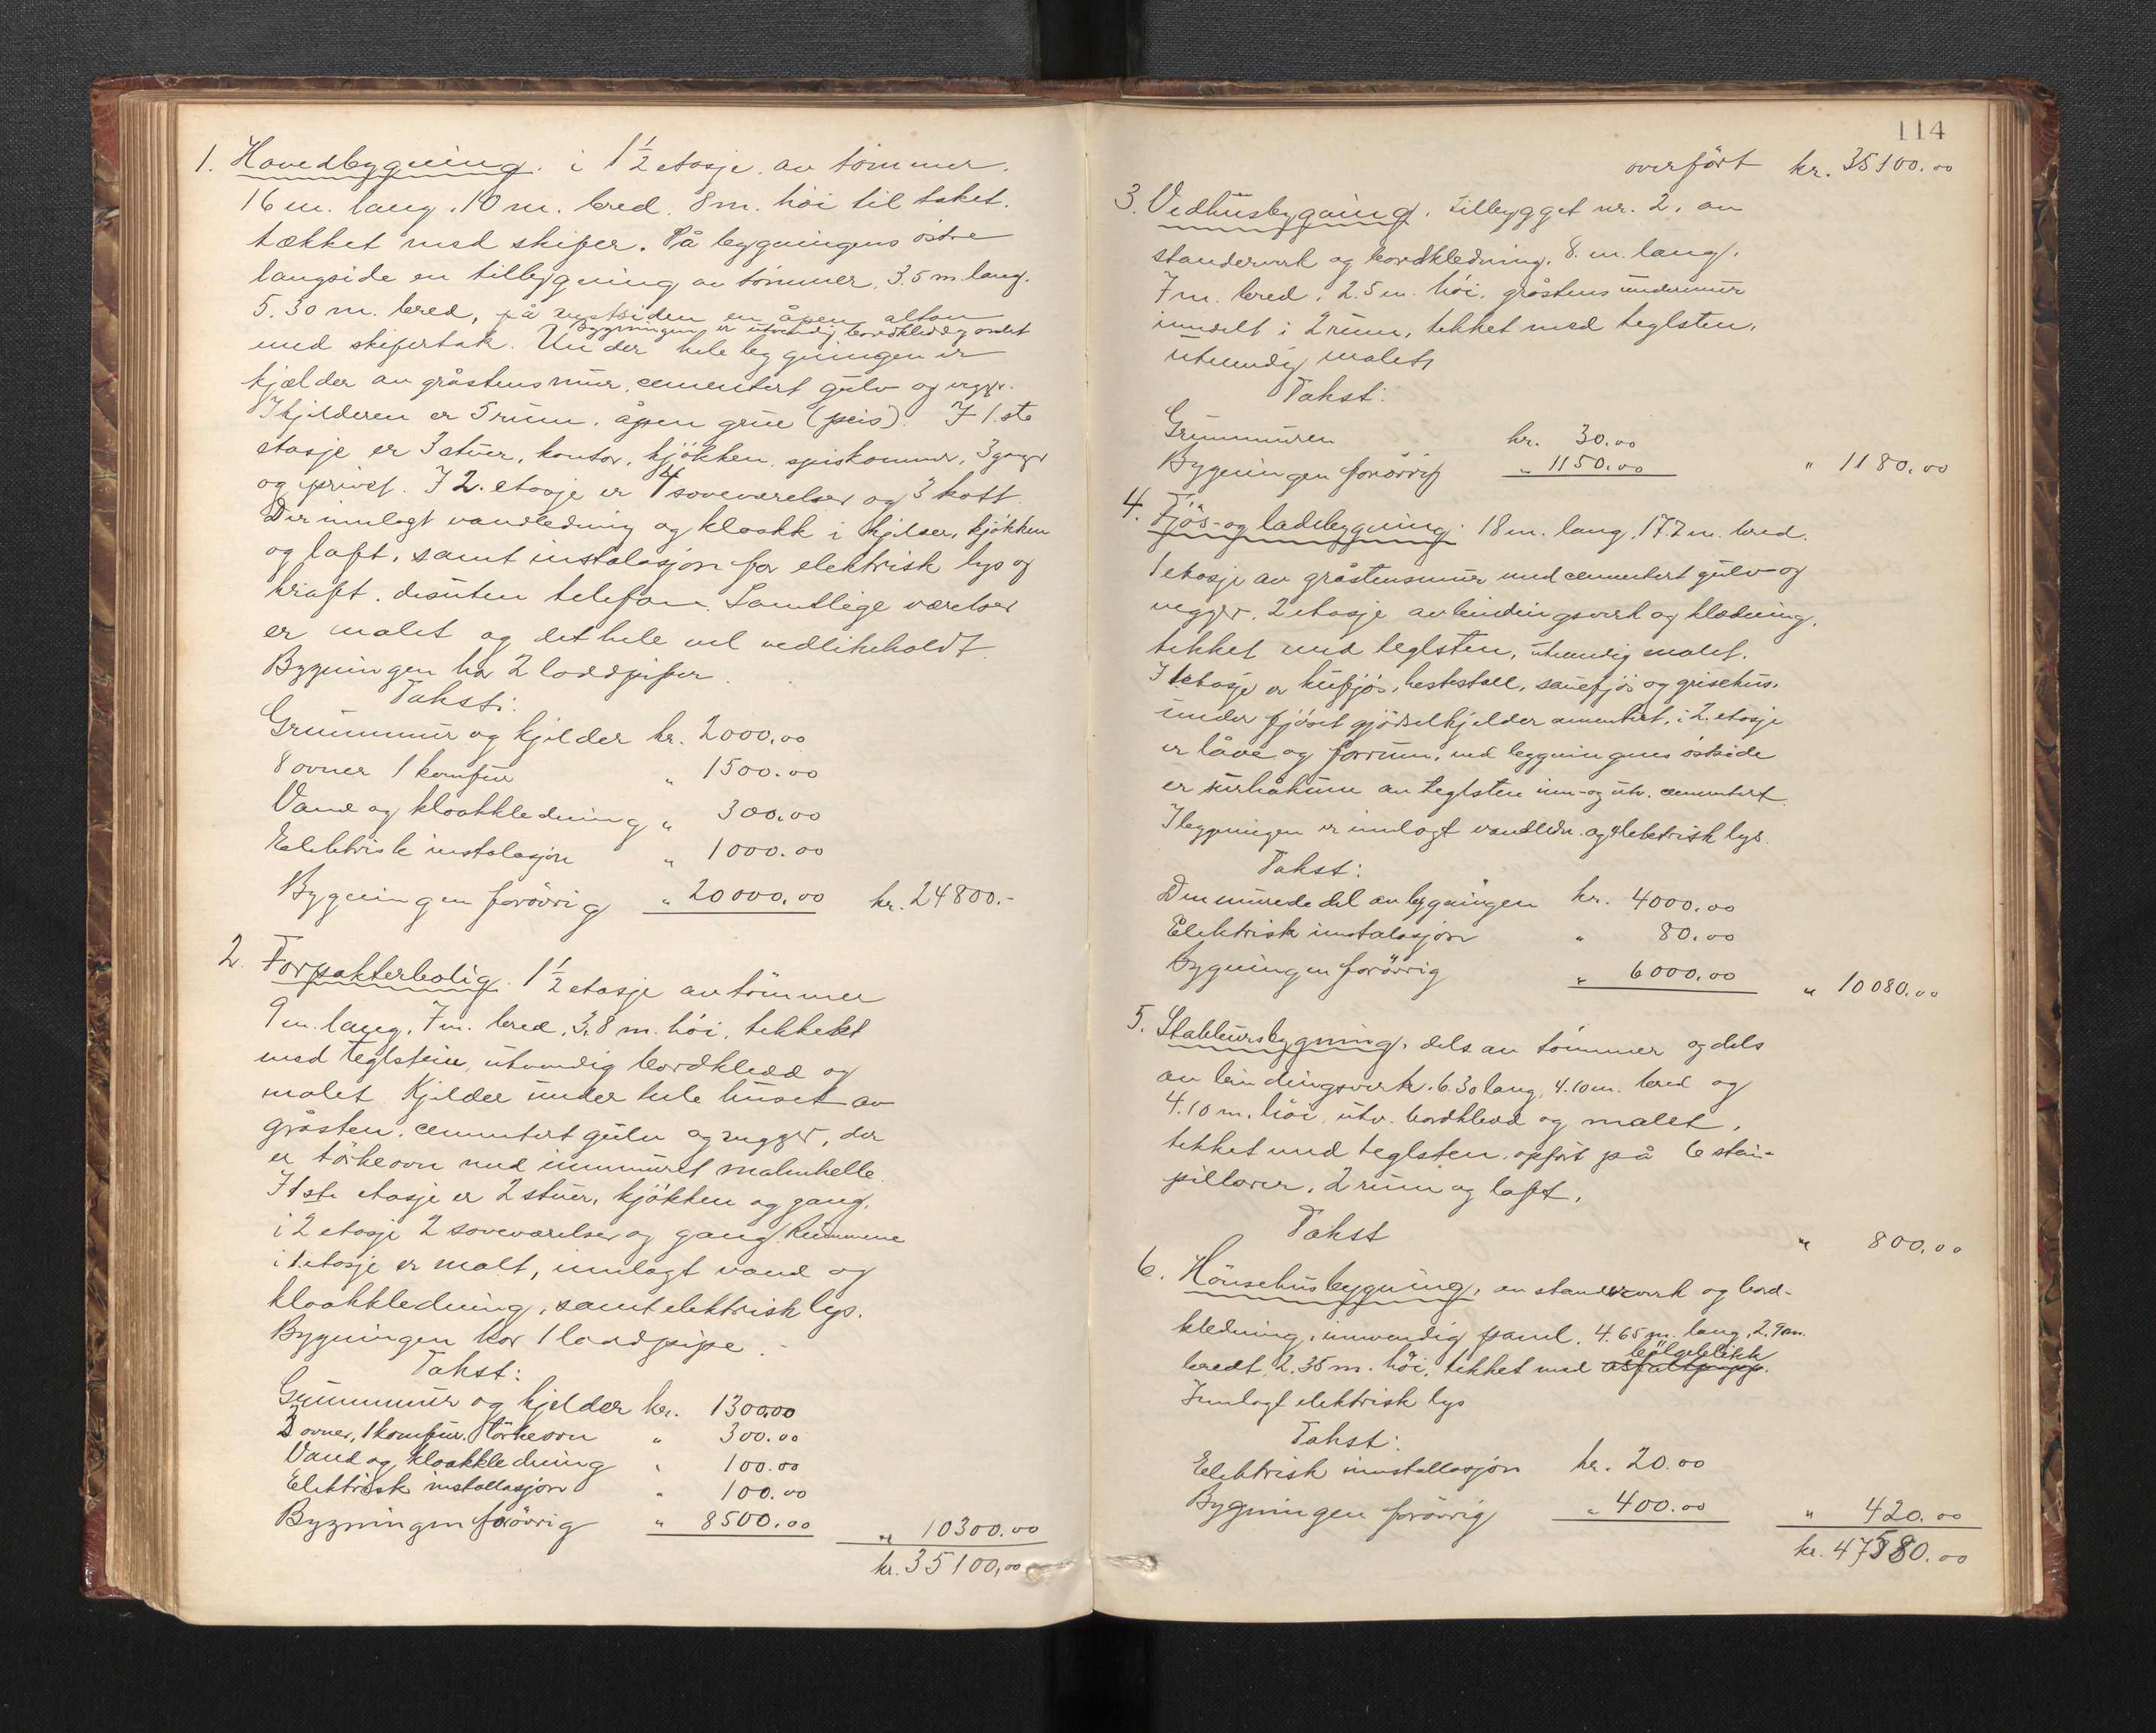 1. Hovedbygning. i 1½ etasje. av tömmer.
16 m. lang. 10 m. bred. 8 m. höi til taket.
tækket med skifer. På bygningens östre
langside en tilbygning av tömmer, 3.5 m. lang.
5.30 m. bred, på vestsiden en åpen altan
Bygningen er utvendig bordkledd og malt
med skifertak. Under hele bygningen er
kjælder av gråstensmur, cementert gulv og vegger.
I kjelderen er 5 rum. åpen grue (peis). I 1.ste
etasje er 3 stuer, kontor, kjökken, spiskammer, 3 ganger
og privet. I 2. etasje er 4 soveværelser og 3 kott.
Der innlagt vandledning og kloakk i kjelder, kjökken
og loft, samt instalasjon for elektrisk lys og
kraft. desuten telefon. Samtlige værelser
er malet og det hele vel vedlikeholdt
Bygningen har 2 loddpiper.
Takst:
Grunnmur og kjelder kr. 2000.00
8 ovner 1 komfur " 1500.00
Vand og kloakkledning " 300.00
Elektrisk instalasjon " 1000.00
Bygningen forövrig " 20000.00 kr. 24800.-
2. Forpakterbolig. 1½ etasje av tömmer
9 m. lang, 7 m. bred, 3.8 m. höi, tekket
med teglstein, utvendig bordkledd og
malet Kjelder under hele huset av
gråsten, cementert gulv og vegger, der
er törkeovn med innmuret malmhelle.
I 1ste etasje er 2 stuer, kjökken og gang,
i 2 etasje 2 soveværelser og gang. Rummene
i 1 etasje er malt, innlagt vand og
kloakkledning, samt elektrisk lys.
Bygningen har 1 loddpipe.
Takst:
Grunnmur og kjelder kr. 1300.00
3 ovner, 1 komfur. törkeovn " 300.00
Vand og kloakkledning " 100.00
Elektrisk installasjon " 100.00
Bygningen forövrig " 8500.00 " 10300.00
kr. 35100,00
114
overfört kr. 35100.00
3. Vedhusbygning, tilbygget nr. 2. av
standerverk og bordkledning. 8. m. lang,
7 m. bred, 2.5 m. höi, gråstens undermur
inndelt i 2 rum, tekket med teglsten,
utvendig malet,
Takst:
Grunnmuren kr. 30.00
Bygningen forövrig " 1150.00 " 1180.00
4. Fjös- og ladebygning. 18 m. lang, 17.2 m. bred.
1 etasje av gråstensmur med cementert gulv og
vegger. 2 etasje av bindingsverk og kledning,
tekket med teglsten, utvendig malet.
I 1 etasje er kufjös, hestestall, sauefjös og grisehus,
under fjöset gjödselkjelder cementert, i 2. etasje
er låve og forrum, ved bygningens östside
er surhåkum av teglsten inn- og utv. cementert.
I bygningen er innlagt vandledn. og elektrisk lys.
Takst:
Den murede del av bygningen kr. 4000.00
Elektrisk instalasjon " 80.00
Bygningen forövrig " 6000.00 " 10080.00
5. Stabbursbygning, dels av tömmer og dels
av bindingsverk. 6.30 lang, 4.10 m. bred og
4.10 m. höi, utv. bordkledd og malet,
tekket med teglsten. opfört på 6 stein-
pillarer, 2 rum og loft,
Takst " 800.00
6. Hönsehusbygning, av standerverk og bord-
kledning, innvendig panel. 4.65 m. lang, 2.90 m.
bölgeblikk
bredt, 2.35 m. höi, tekket med asfaltpapp.
Innlagt elektrisk lys
Takst:
Elektrisk innstallasjon kr. 20.00
Bygningen forövrig " 400.00 " 420.00
kr. 47880.00